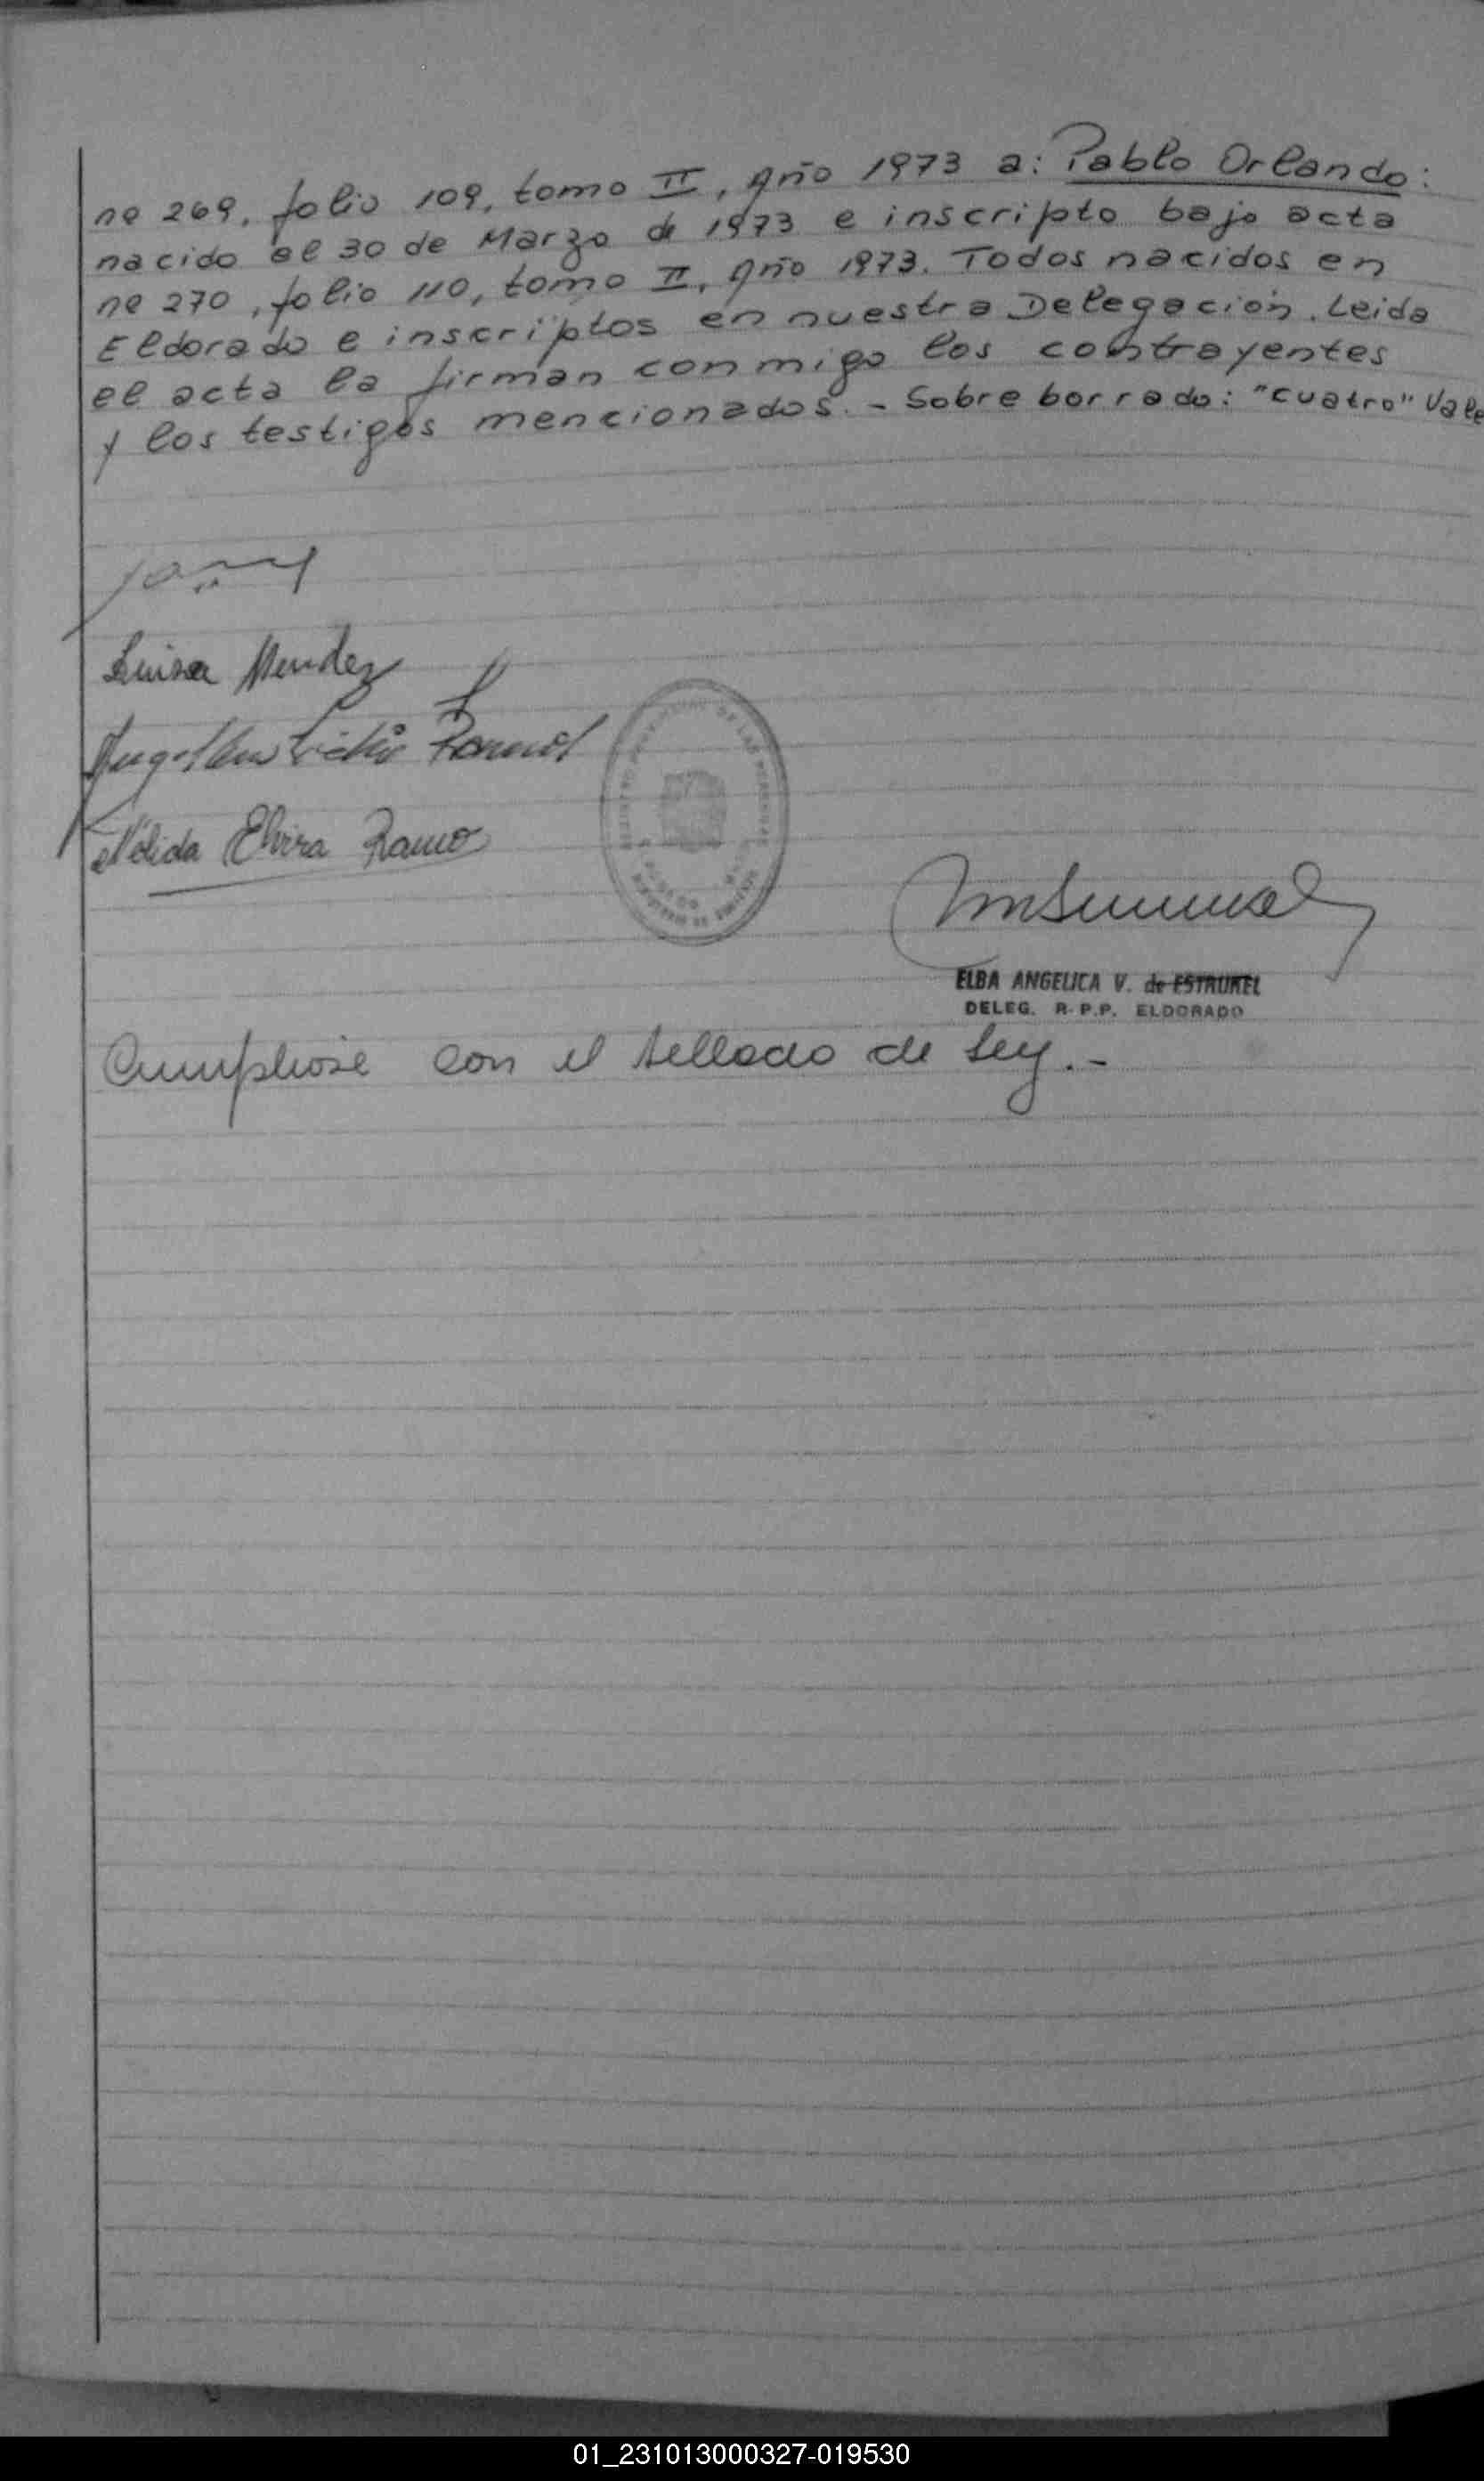 nº 269, folio 109, tomo II, Año 1973 a: Pablo Orlando:
nacido el 30 de Marzo de 1973 e inscripto bajo acta
nº 270, folio 110, tomo II, Año 1973. Todos nacidos en
Eldorado e inscriptos en nuestra Delegación. Leida
el acta la firman conmigo los contrayentes
y los testigos mencionados. - Sobre borrado: "cuatro" Vale
Luisa Mendez
Nélida Elvira Ramo
ELBA ANGELICA V. de ESTRUKEL
DELEG. R.P.P. ELDORADO
Cumpliose con el sellado de Ley.-
01_231013000327-019530